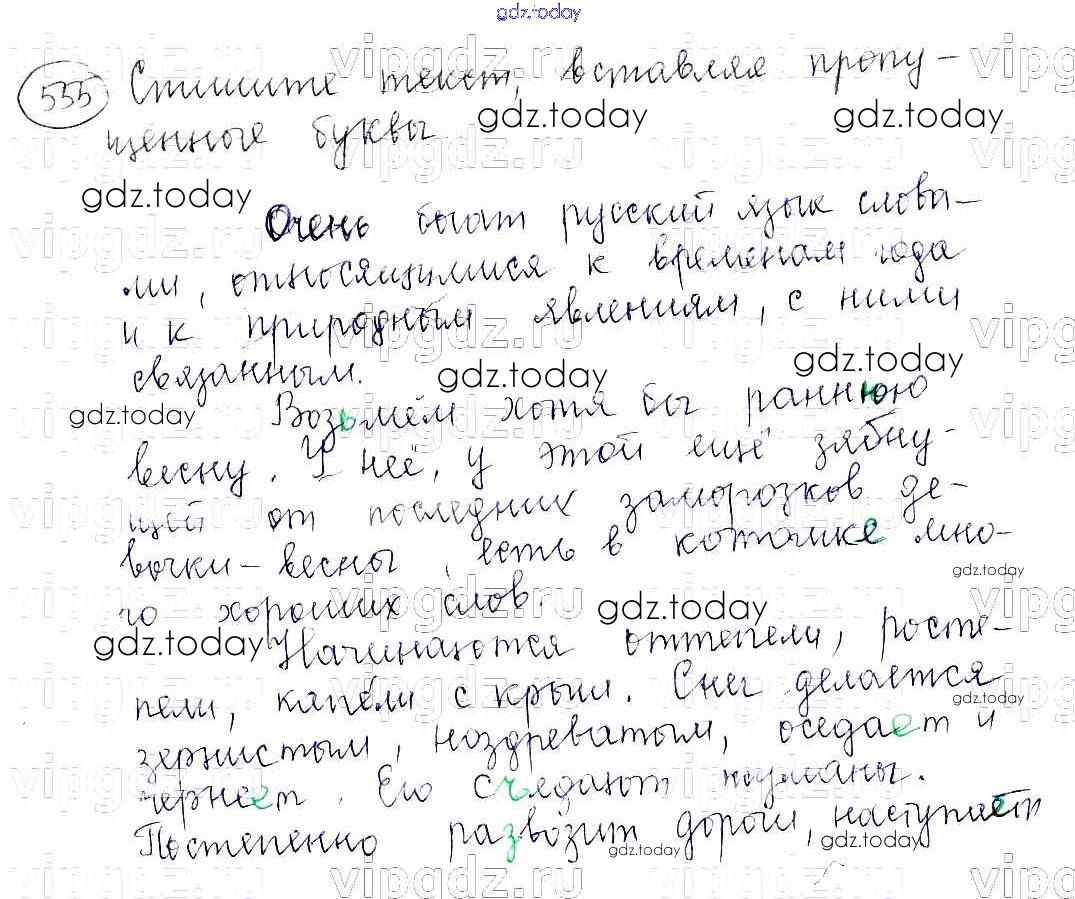 gdz.today
535 Спишите текст, вставляя пропу-
щенные буквы
Очень богат русский язык слова-
ми, относящимися к временам года
и к природным явлениям, с ними
связанным.
Возьмём хотя бы раннюю
весну. У неё, у этой ещё зябну-
щей от последних заморозков де-
вочки-весны, есть в котомке мно-
го хороших слов.
Начинаются оттепели, росте-
пели, капели с крыш. Снег делается
зернистым, ноздреватым, оседает и
чернеет. Его съедают туманы.
Постепенно развозит дороги, наступает